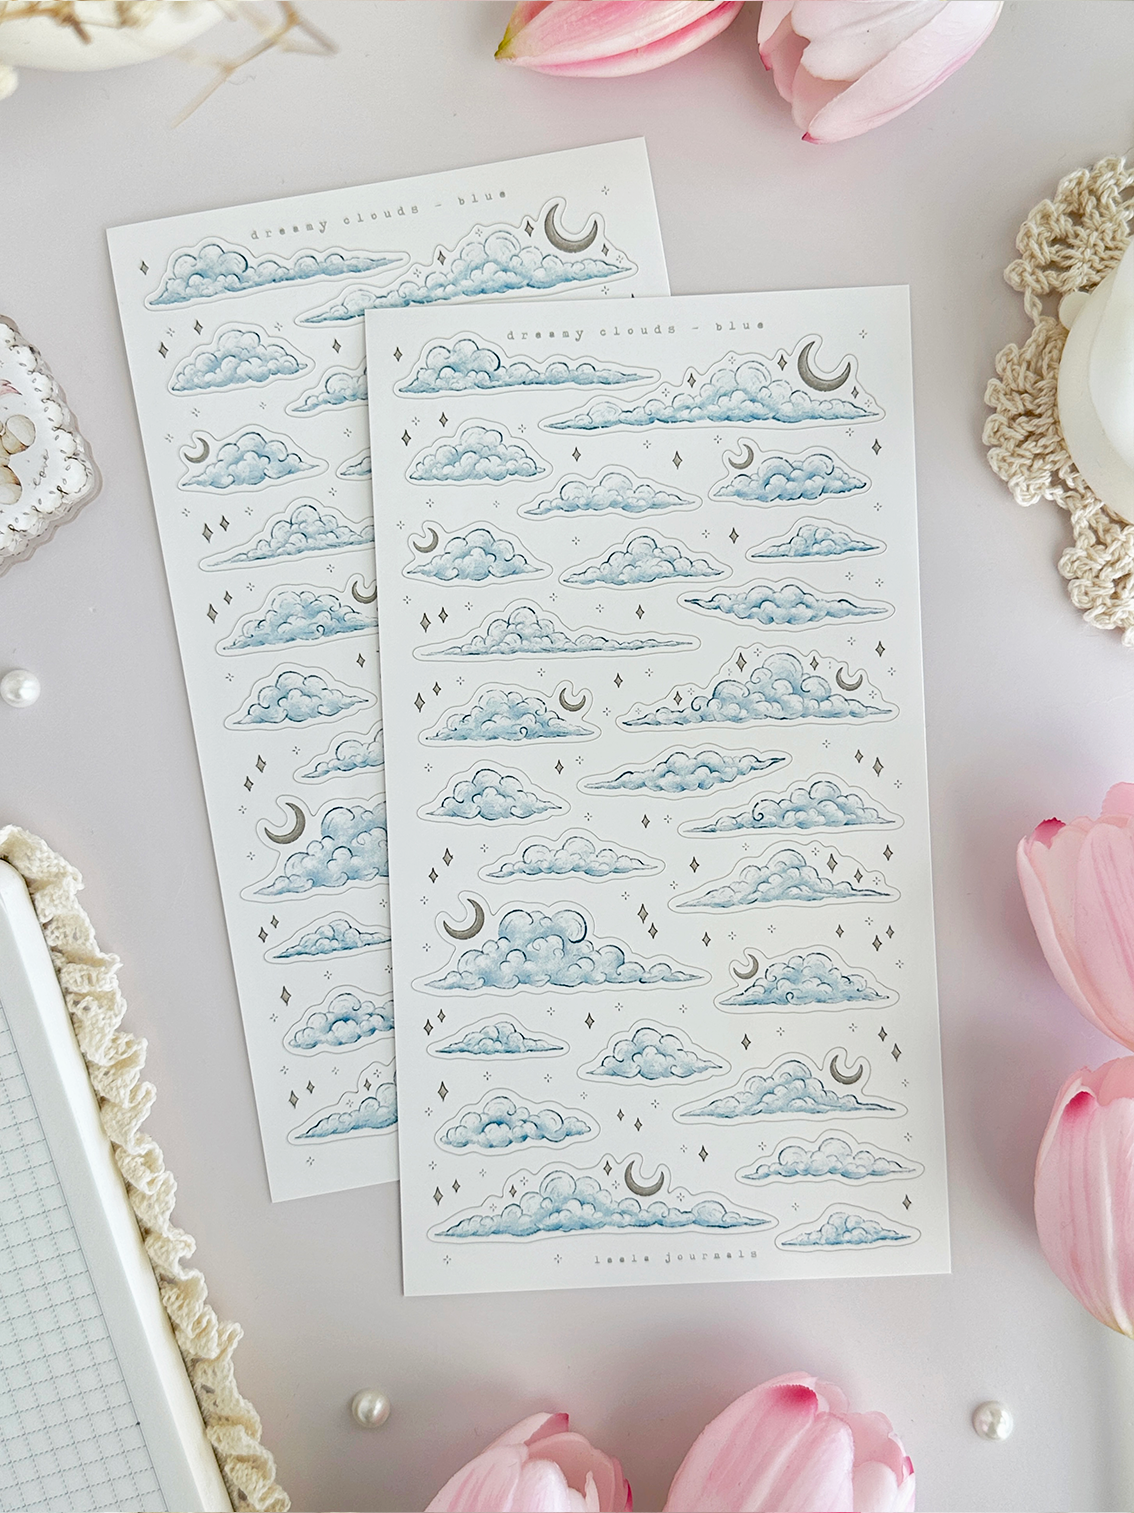 dreamy clouds - blue
dreamy clouds - blue
leela journals